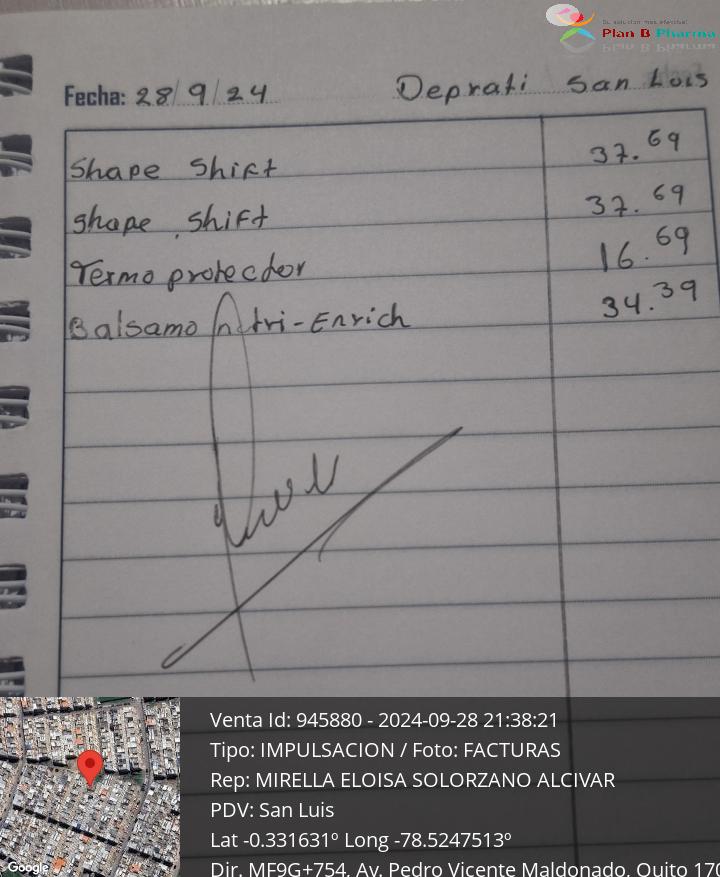 Su solucion mas efectiva!
Plan B Pharma
Fecha: 28/9/24 Deprati San Luis
Shape Shift 37.69
Shape Shift 37.69
Termo protector 16.69
Balsamo ntri-Enrich 34.39
Venta Id: 945880 - 2024-09-28 21:38:21
Tipo: IMPULSACION / Foto: FACTURAS
Rep: MIRELLA ELOISA SOLORZANO ALCIVAR
PDV: San Luis
Lat -0.331631º Long -78.5247513º
Dir. MF9G+754, Av. Pedro Vicente Maldonado, Quito 170
Google